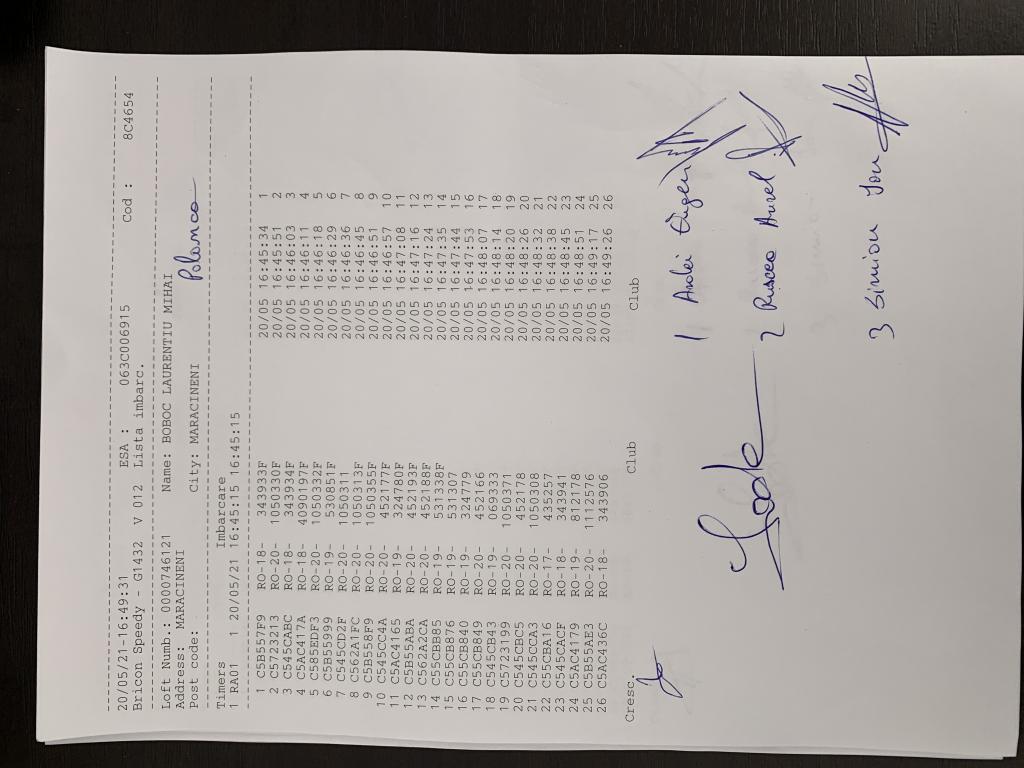 --------------------------------------------------------------------------------
20/05/21-16:49:31 ESA : 063C006915 Cod : 8C4654
Bricon Speedy - G1432 V 012 Lista imbarc.
--------------------------------------------------------------------------------
Loft Numb.: 0000746121 Name: BOBOC LAURENTIU MIHAI
Address: MARACINENI
Post code: City: MARACINENI Polonca
--------------------------------------------------------------------------------
Timers Imbarcare
1 RA01 1 20/05/21 16:45:15 16:45:15
--------------------------------------------------------------------------------
1 C5B557F9 RO-18- 343933F 20/05 16:45:34 1
2 C5723213 RO-20- 1050330F 20/05 16:45:51 2
3 C545CABC RO-18- 343934F 20/05 16:46:03 3
4 C5AC417A RO-18- 4090197F 20/05 16:46:11 4
5 C585EDF3 RO-20- 1050332F 20/05 16:46:18 5
6 C5B55999 RO-19- 530851F 20/05 16:46:29 6
7 C545CD2F RO-20- 1050311 20/05 16:46:36 7
8 C562A1FC RO-20- 1050313F 20/05 16:46:45 8
9 C5B558F9 RO-20- 1050355F 20/05 16:46:51 9
10 C545CC4A RO-20- 452177F 20/05 16:46:57 10
11 C5AC4165 RO-19- 324780F 20/05 16:47:08 11
12 C5B55ABA RO-20- 452193F 20/05 16:47:16 12
13 C562A2CA RO-20- 452188F 20/05 16:47:24 13
14 C55CBB85 RO-19- 531338F 20/05 16:47:35 14
15 C55CB876 RO-19- 531307 20/05 16:47:44 15
16 C55CB840 RO-19- 324779 20/05 16:47:53 16
17 C55CB849 RO-20- 452166 20/05 16:48:07 17
18 C545CB43 RO-19- 069333 20/05 16:48:14 18
19 C5723199 RO-20- 1050371 20/05 16:48:20 19
20 C545CBC5 RO-20- 452178 20/05 16:48:26 20
21 C545CCA3 RO-20- 1050308 20/05 16:48:32 21
22 C55CBA16 RO-17- 435257 20/05 16:48:38 22
23 C545CACF RO-18- 343941 20/05 16:48:45 23
24 C5AC4179 RO-19- 812178 20/05 16:48:51 24
25 C5B55AE3 RO-20- 1112576 20/05 16:49:17 25
26 C5AC436C RO-18- 343906 20/05 16:49:26 26
Cresc. Club Club
1
2 Aurel
3 Simion Ion